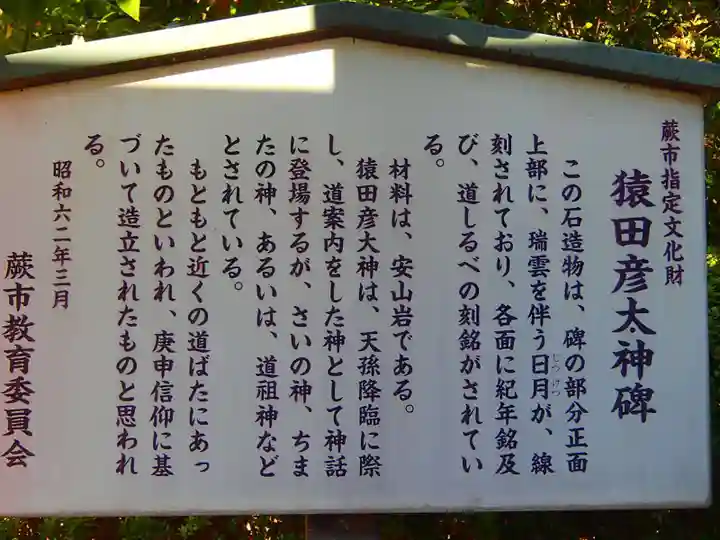 蕨市指定文化財
猿田彦太神碑
この石造物は、碑の部分正面
上部に、瑞雲を伴う日月が、線
じつげつ
刻されており、各面に紀年銘及
び、道しるべの刻銘がされてい
る。
材料は、安山岩である。
猿田彦大神は、天孫降臨に際
し、道案内をした神として神話
に登場するが、さいの神、ちま
たの神、あるいは、道祖神など
とされている。
もともと近くの道ばたにあっ
たものといわれ、庚申信仰に基
づいて造立されたものと思われ
る。
昭和六二年三月
蕨市教育委員会